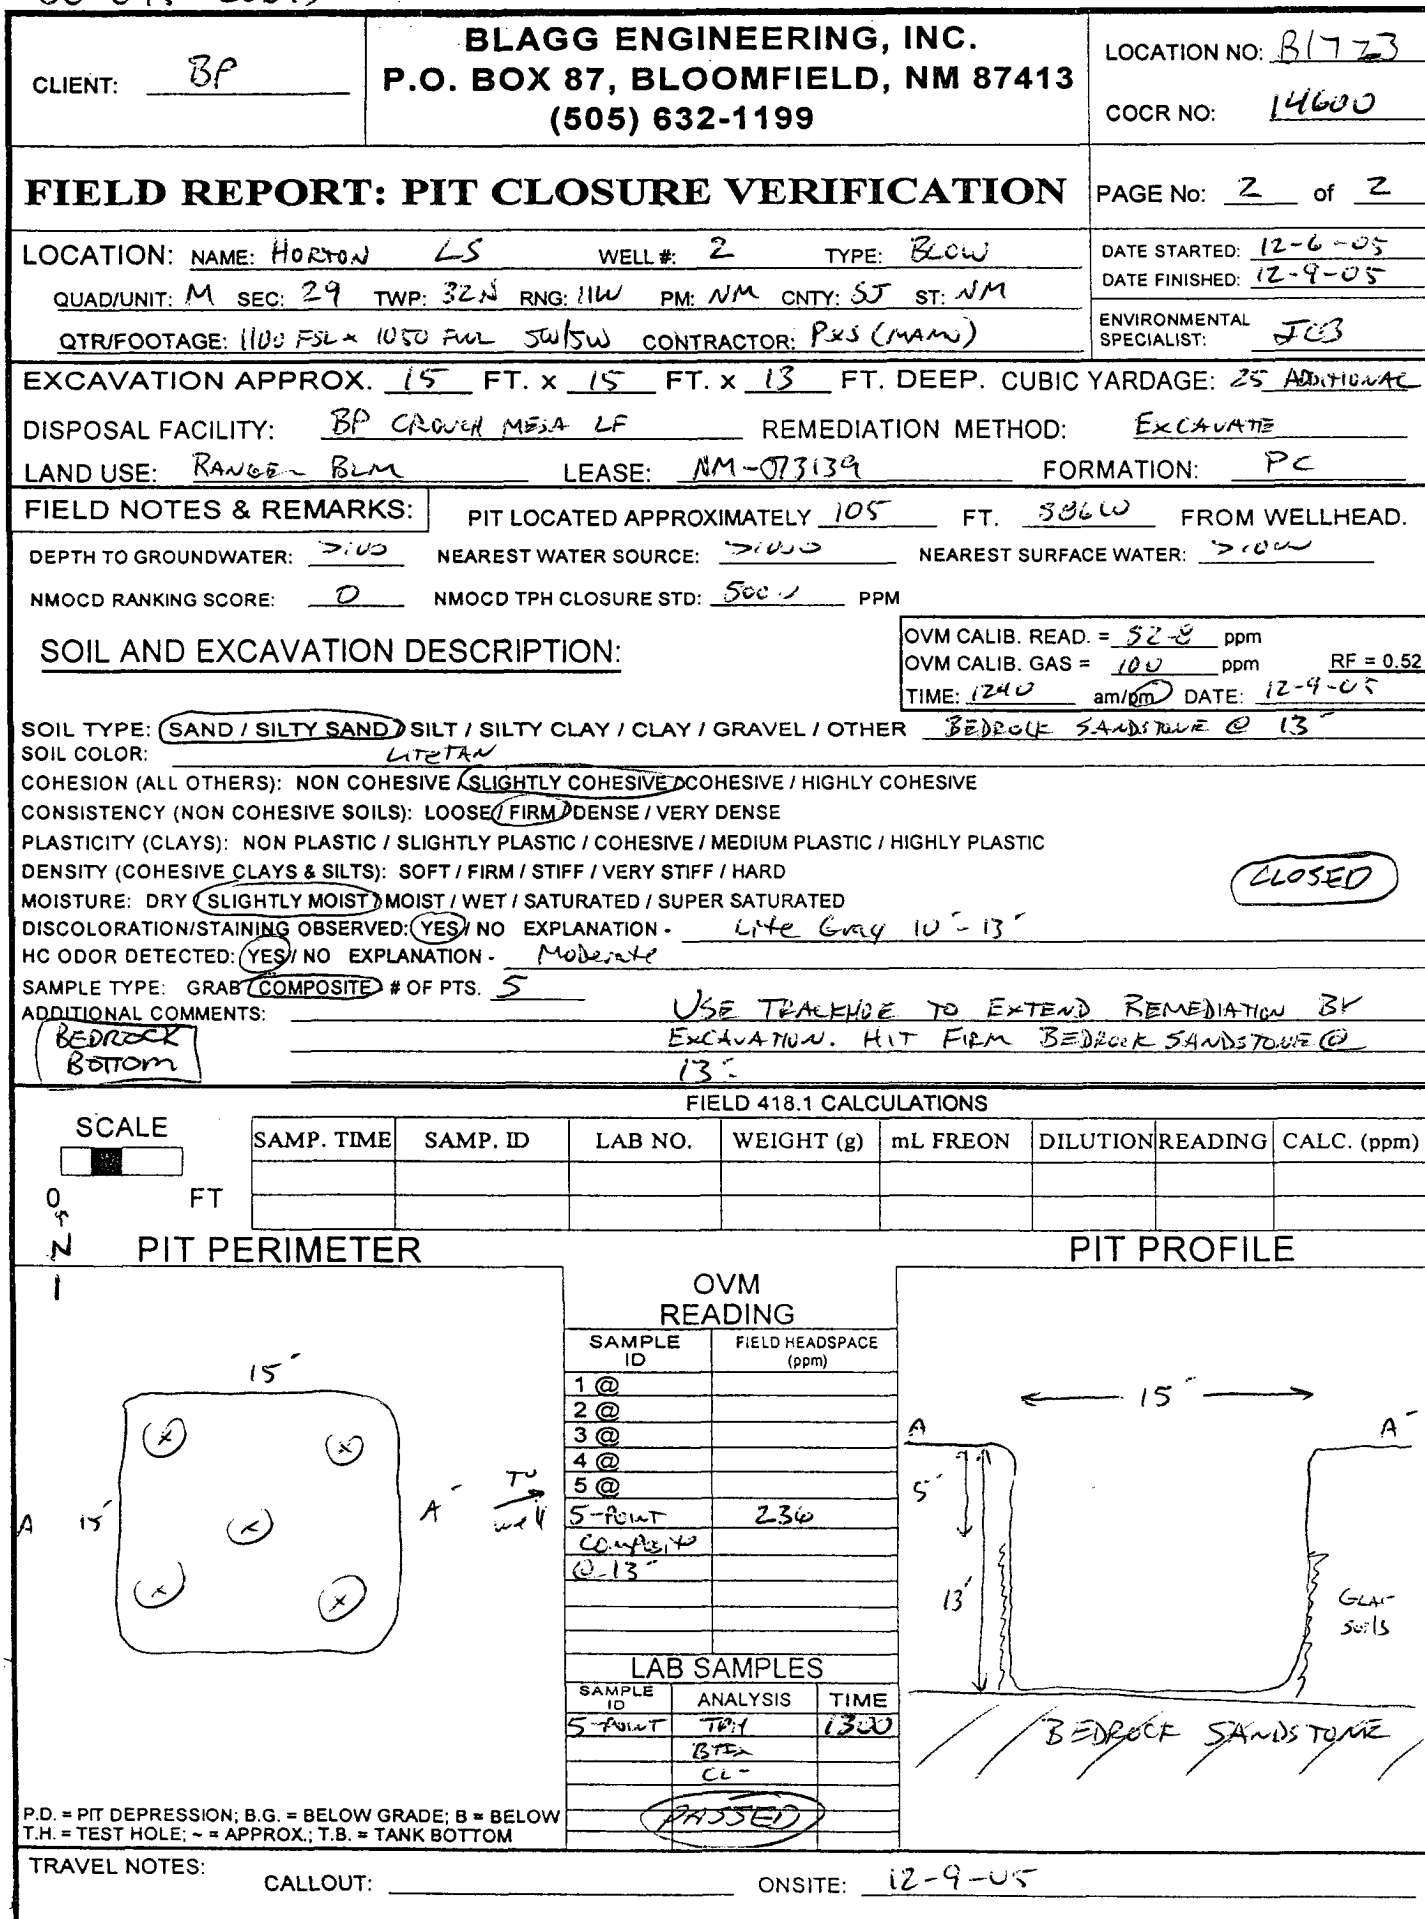 CLIENT: BP
BLAGG ENGINEERING, INC.
P.O. BOX 87, BLOOMFIELD, NM 87413
(505) 632-1199
LOCATION NO: B1723
COCR NO: 14600
FIELD REPORT: PIT CLOSURE VERIFICATION
PAGE No: 2 of 2
LOCATION: NAME: HORTON LS WELL #: 2 TYPE: BLOW
DATE STARTED: 12-6-05
DATE FINISHED: 12-9-05
QUAD/UNIT: M SEC: 29 TWP: 32N RNG: 11W PM: NM CNTY: SJ ST: NM
QTR/FOOTAGE: 1100 FSL x 1050 FWL SW/SW CONTRACTOR: P&S
ENVIRONMENTAL SPECIALIST: JCB
EXCAVATION APPROX. 15 FT. x 15 FT. x 13 FT. DEEP. CUBIC YARDAGE: 25 ADDITIONAL
DISPOSAL FACILITY: BP CROUCH MESA LF REMEDIATION METHOD: EXCAVATE
LAND USE: RANGE - BLM LEASE: NM-073139 FORMATION: PC
FIELD NOTES & REMARKS: PIT LOCATED APPROXIMATELY 105 FT. FROM WELLHEAD.
DEPTH TO GROUNDWATER: >100 NEAREST WATER SOURCE: >1000 NEAREST SURFACE WATER: >1000
NMOCD RANKING SCORE: 0 NMOCD TPH CLOSURE STD: 5000 PPM
SOIL AND EXCAVATION DESCRIPTION:
OVM CALIB. READ. = 52.8 ppm
OVM CALIB. GAS = 100 ppm RF = 0.52
TIME: 1240 am/pm DATE: 12-9-05
SOIL TYPE: SAND / SILTY SAND / SILT / SILTY CLAY / CLAY / GRAVEL / OTHER BEDROCK SANDSTONE @ 13'
SOIL COLOR: LITE TAN
COHESION (ALL OTHERS): NON COHESIVE / SLIGHTLY COHESIVE / COHESIVE / HIGHLY COHESIVE
CONSISTENCY (NON COHESIVE SOILS): LOOSE / FIRM / DENSE / VERY DENSE
PLASTICITY (CLAYS): NON PLASTIC / SLIGHTLY PLASTIC / COHESIVE / MEDIUM PLASTIC / HIGHLY PLASTIC
DENSITY (COHESIVE CLAYS & SILTS): SOFT / FIRM / STIFF / VERY STIFF / HARD
CLOSED
MOISTURE: DRY / SLIGHTLY MOIST / MOIST / WET / SATURATED / SUPER SATURATED
DISCOLORATION/STAINING OBSERVED: YES / NO EXPLANATION - Lite Gray 10' - 13'
HC ODOR DETECTED: YES / NO EXPLANATION - Moderate
SAMPLE TYPE: GRAB / COMPOSITE # OF PTS. 5
ADDITIONAL COMMENTS: USE TRACKHOE TO EXTEND REMEDIATION BY
BEDROCK BOTTOM
EXCAVATION. HIT FIRM BEDROCK SANDSTONE @
13'
FIELD 418.1 CALCULATIONS
SCALE
0 FT
SAMP. TIME SAMP. ID LAB NO. WEIGHT (g) mL FREON DILUTION READING CALC. (ppm)
N
PIT PERIMETER
15'
A 15' A'
TO well
OVM READING
SAMPLE ID FIELD HEADSPACE (ppm)
1 @
2 @
3 @
4 @
5 @
5-POINT 236
Composite
@ 13'
LAB SAMPLES
SAMPLE ID ANALYSIS TIME
5-POINT TPH 1300
BTEX
CL-
PASSED
PIT PROFILE
15'
A A'
5'
13'
GRAY soils
BEDROCK SANDSTONE
P.D. = PIT DEPRESSION; B.G. = BELOW GRADE; B = BELOW
T.H. = TEST HOLE; ~ = APPROX.; T.B. = TANK BOTTOM
TRAVEL NOTES:
CALLOUT: ONSITE: 12-9-05